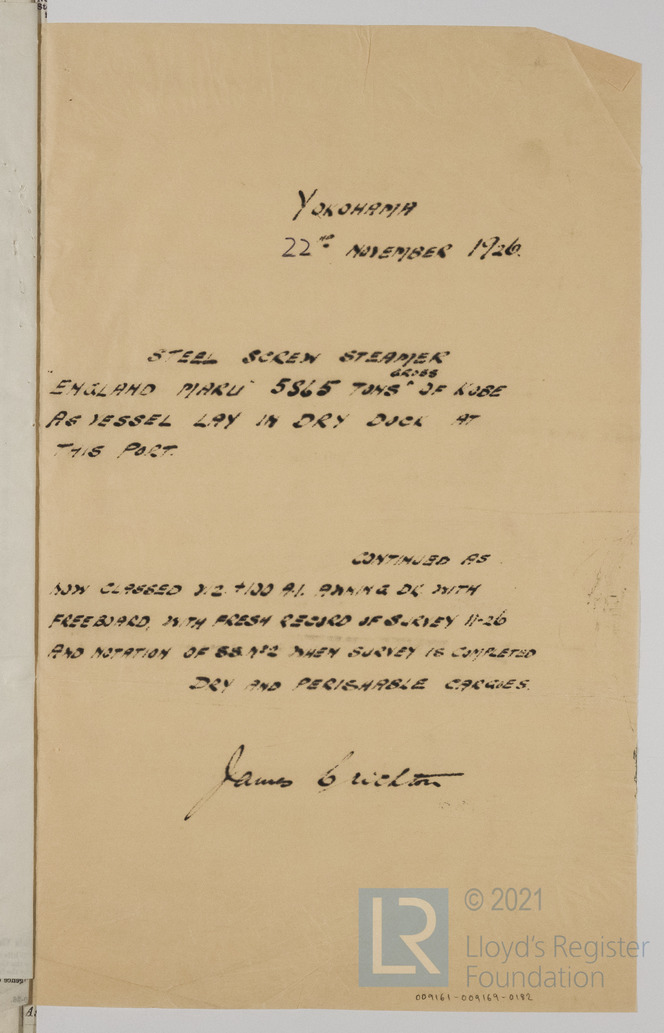 YOKOHAMA
22ND NOVEMBER 1926.
STEEL SCREW STEAMER
"ENGLAND MARU" 5865 TONS GROSS OF KOBE
AS VESSEL LAY IN DRY DOCK AT
THIS PORT.
CONTINUED AS
NOW CLASSED VIZ +100 A.1. AWNING DK WITH
FREEBOARD, WITH FRESH RECORD OF SURVEY 11-26
AND NOTATION OF SS. No2 WHEN SURVEY IS COMPLETED
DRY AND PERISHABLE CARGOES.
James Crichton
LR
© 2021
Lloyd's Register
Foundation
009161-009169-0182